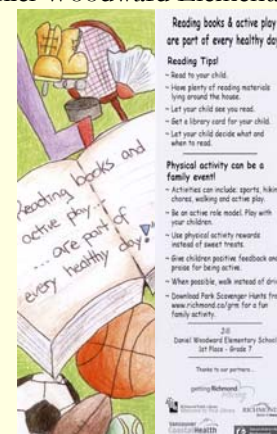 Reading books and
active play...
...are part of
every healthy day!
Reading books & active play
are part of every healthy day
Reading Tips!
~ Read to your child.
~ Have plenty of reading materials
lying around the house.
~ Let your child see you read.
~ Get a library card for your child.
~ Let your child decide what and
when to read.
Physical activity can be a
family event!
~ Activities can include: sports, hikin
chores, walking and active play.
~ Be an active role model. Play with
your children.
~ Use physical activity rewards
instead of sweet treats.
~ Give children positive feedback and
praise for being active.
~ When possible, walk instead of driv
~ Download Park Scavenger Hunts fro
www.richmond.ca/grm for a fun
family activity.
Daniel Woodward Elementary School
1st Place - Grade 7
Thanks to our partners...
getting Richmond
Moving
Richmond Public Library
RICHMOND
Vancouver
CoastalHealth